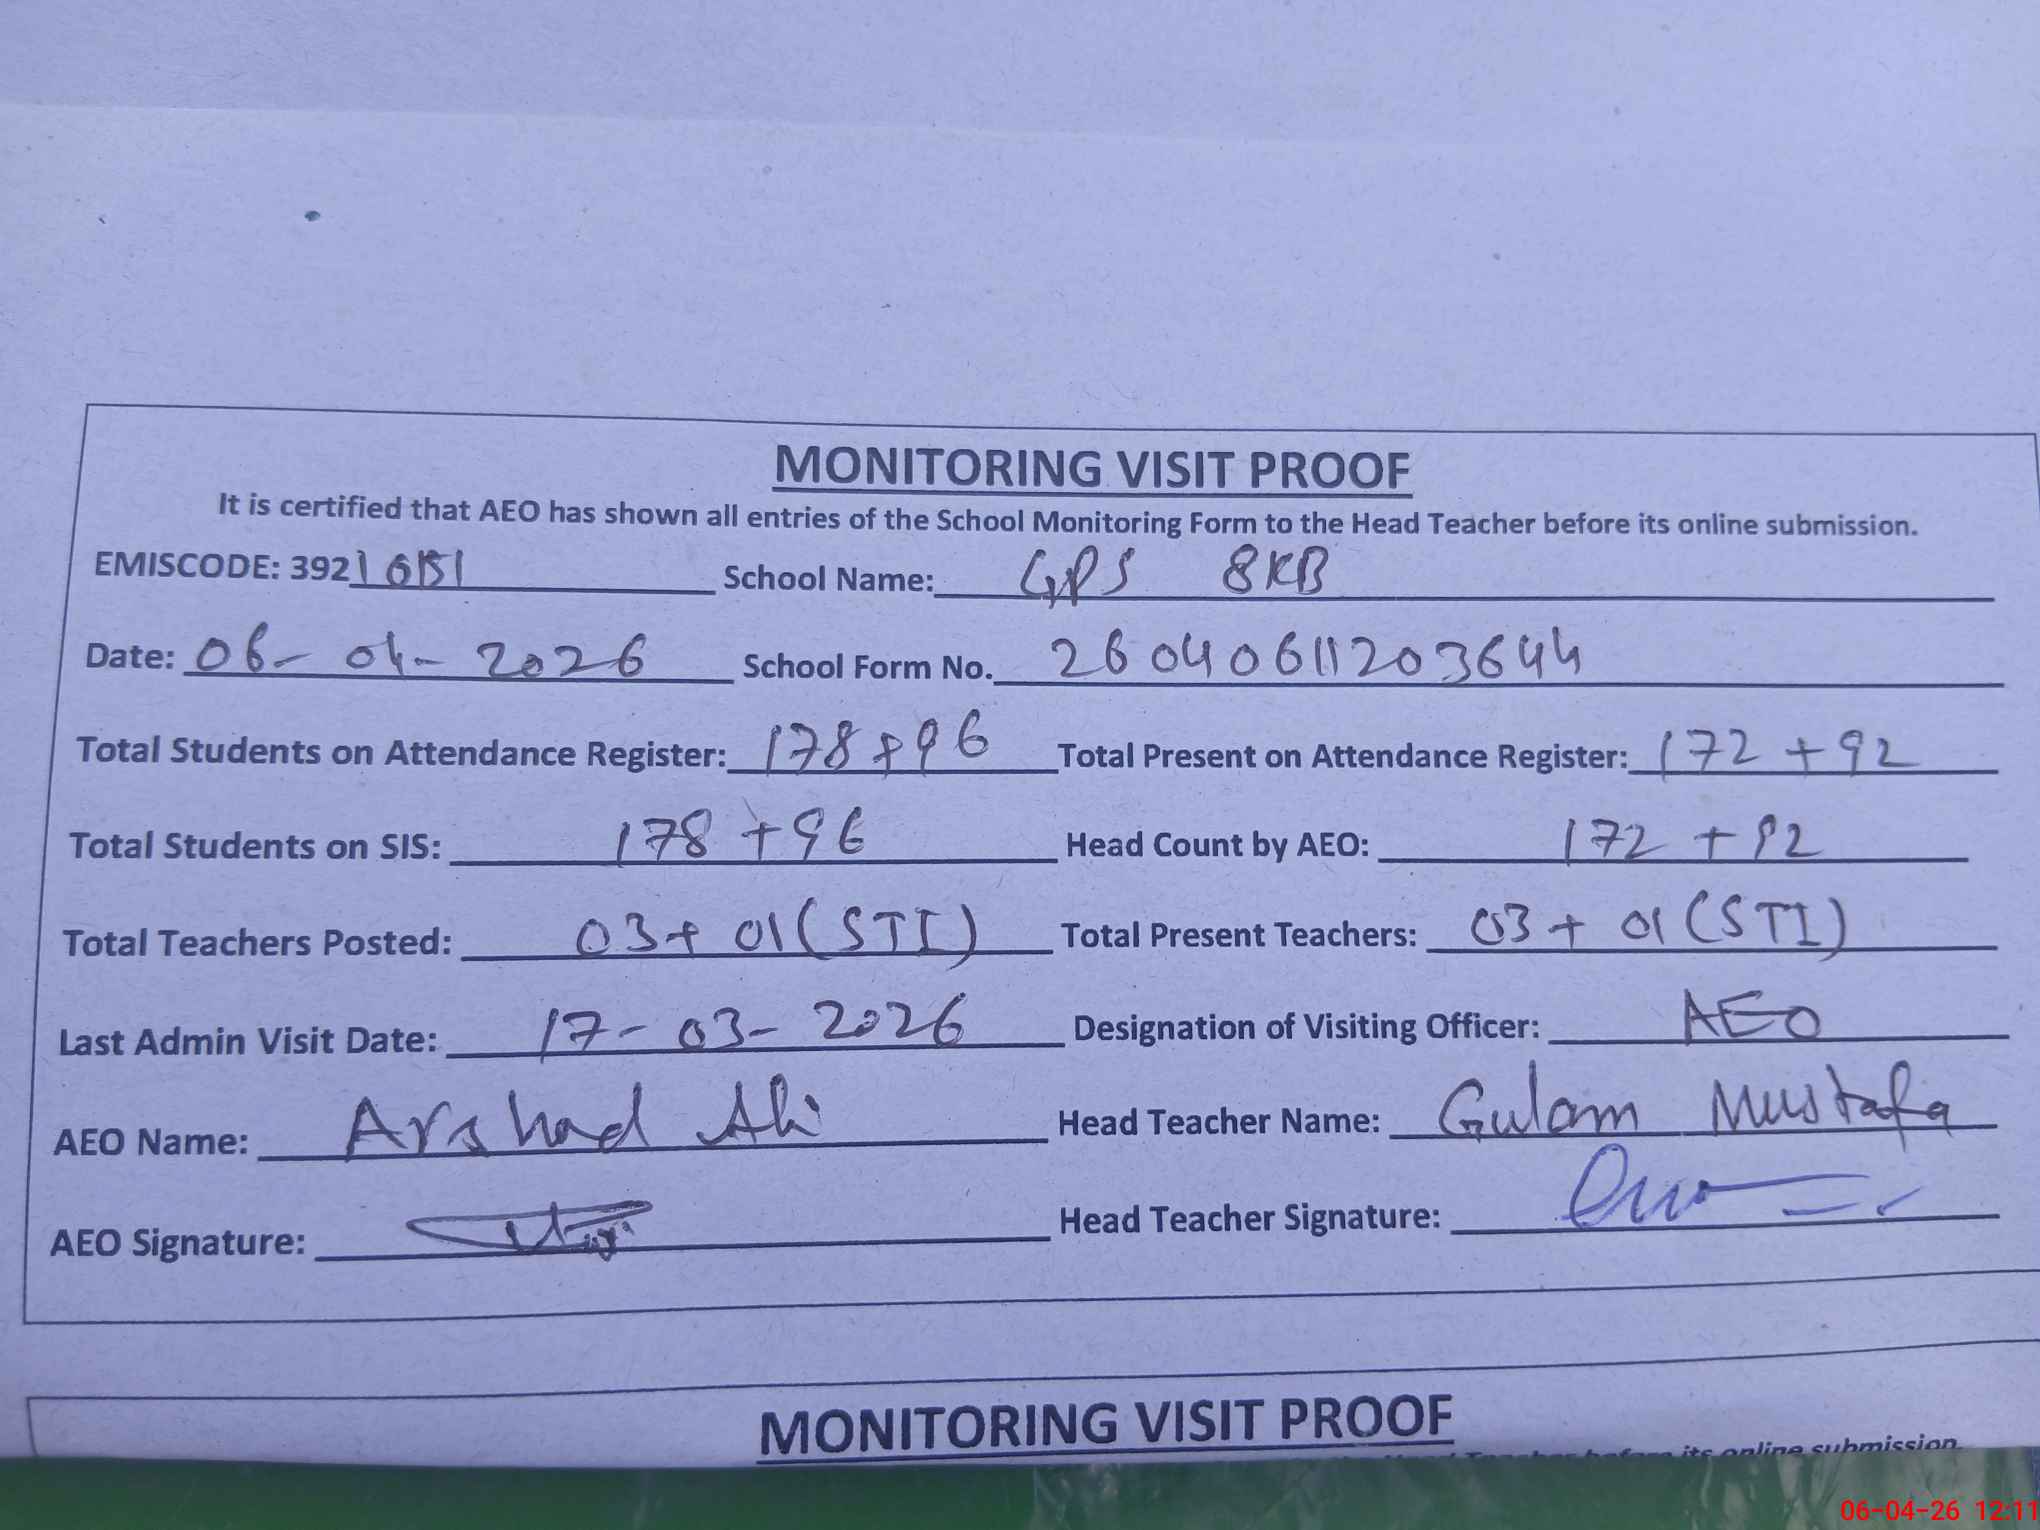 MONITORING VISIT PROOF
It is certified that AEO has shown all entries of the School Monitoring Form to the Head Teacher before its online submission.
EMISCODE: 392 School Name: GPS 8KB
Date: 06-04-2026 School Form No. 26040611203644
Total Students on Attendance Register: 178+96 Total Present on Attendance Register: 172+92
Total Students on SIS: 178+96 Head Count by AEO: 172+92
Total Teachers Posted: 03+01(STI) Total Present Teachers: 03+01(STI)
Last Admin Visit Date: 17-03-2026 Designation of Visiting Officer: AEO
AEO Name: Arshad Ali Head Teacher Name: Gulam Mustafa
AEO Signature: Head Teacher Signature:
MONITORING VISIT PROOF
before its online submission.
06-04-26 12:11